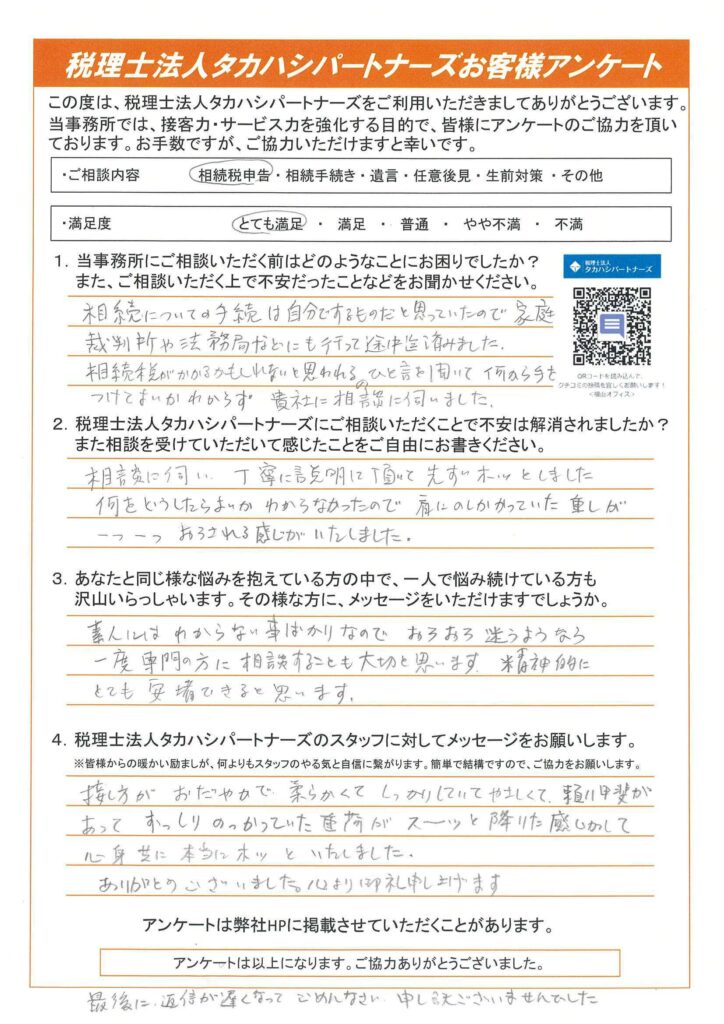 税理士法人タカハシパートナーズお客様アンケート
この度は、税理士法人タカハシパートナーズをご利用いただきましてありがとうございます。
当事務所では、接客力・サービス力を強化する目的で、皆様にアンケートのご協力を頂いております。お手数ですが、ご協力いただけますと幸いです。
・ご相談内容 相続税申告・相続手続き・遺言・任意後見・生前対策・その他
・満足度 とても満足 ・ 満足 ・ 普通 ・ やや不満 ・ 不満
1. 当事務所にご相談いただく前はどのようなことにお困りでしたか？
また、ご相談いただく上で不安だったことなどをお聞かせください。
税理士法人
タカハシパートナーズ
QRコードを読み込んで、
クチコミの投稿を宜しくお願いします！
<福山オフィス>
相続についての手続は自分でするものだと思っていたので 家庭
裁判所や法務局などにも行って途中迄済みました.
相続税がかかるかもしれないと思われるのひと言を聞いて 何から手を
つけてよいかわからず 貴社に相談に伺いました.
2. 税理士法人タカハシパートナーズにご相談いただくことで不安は解消されましたか？
また相談を受けていただいて感じたことをご自由にお書きください。
相談に伺い. 丁寧に説明して頂いて 先ずホッとしました
何をどうしたらよいか わからなかったので 肩にのしかかっていた 重しが
一つ一つ おろされる感じがいたしました.
3. あなたと同じ様な悩みを抱えている方の中で、一人で悩み続けている方も
沢山いらっしゃいます。その様な方に、メッセージをいただけますでしょうか。
素人には わからない事ばかりなので おろおろ 迷うようなら
一度専門の方に 相談することも大切と思います. 精神的に
とても 安堵できると思います.
4. 税理士法人タカハシパートナーズのスタッフに対してメッセージをお願いします。
※皆様からの暖かい励ましが、何よりもスタッフのやる気と自信に繋がります。簡単で結構ですので、ご協力をお願いします。
接し方が おだやかで. 柔らかくて しっかりしていて やさしくて. 頼り甲斐が
あって ずっしり のっかっていた 重荷が スーッと 降りた 感じがして
心身共に 本当に ホッと いたしました.
ありがとうございました。心より御礼申し上げます
アンケートは弊社HPに掲載させていただくことがあります。
アンケートは以上になります。ご協力ありがとうございました。
最後に. 返信が遅くなって ごめんなさい. 申し訳ございませんでした